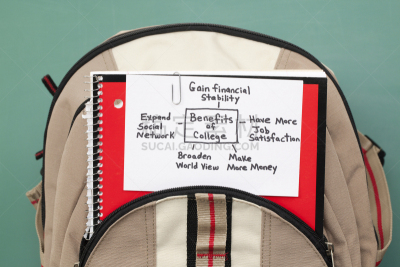 Gain financial
Stability
Expand
Social
Network
Benefits
of
College
Have More
Job
Satisfaction
Broaden
World View
Make
More Money
SUCAI.GAODING.COM